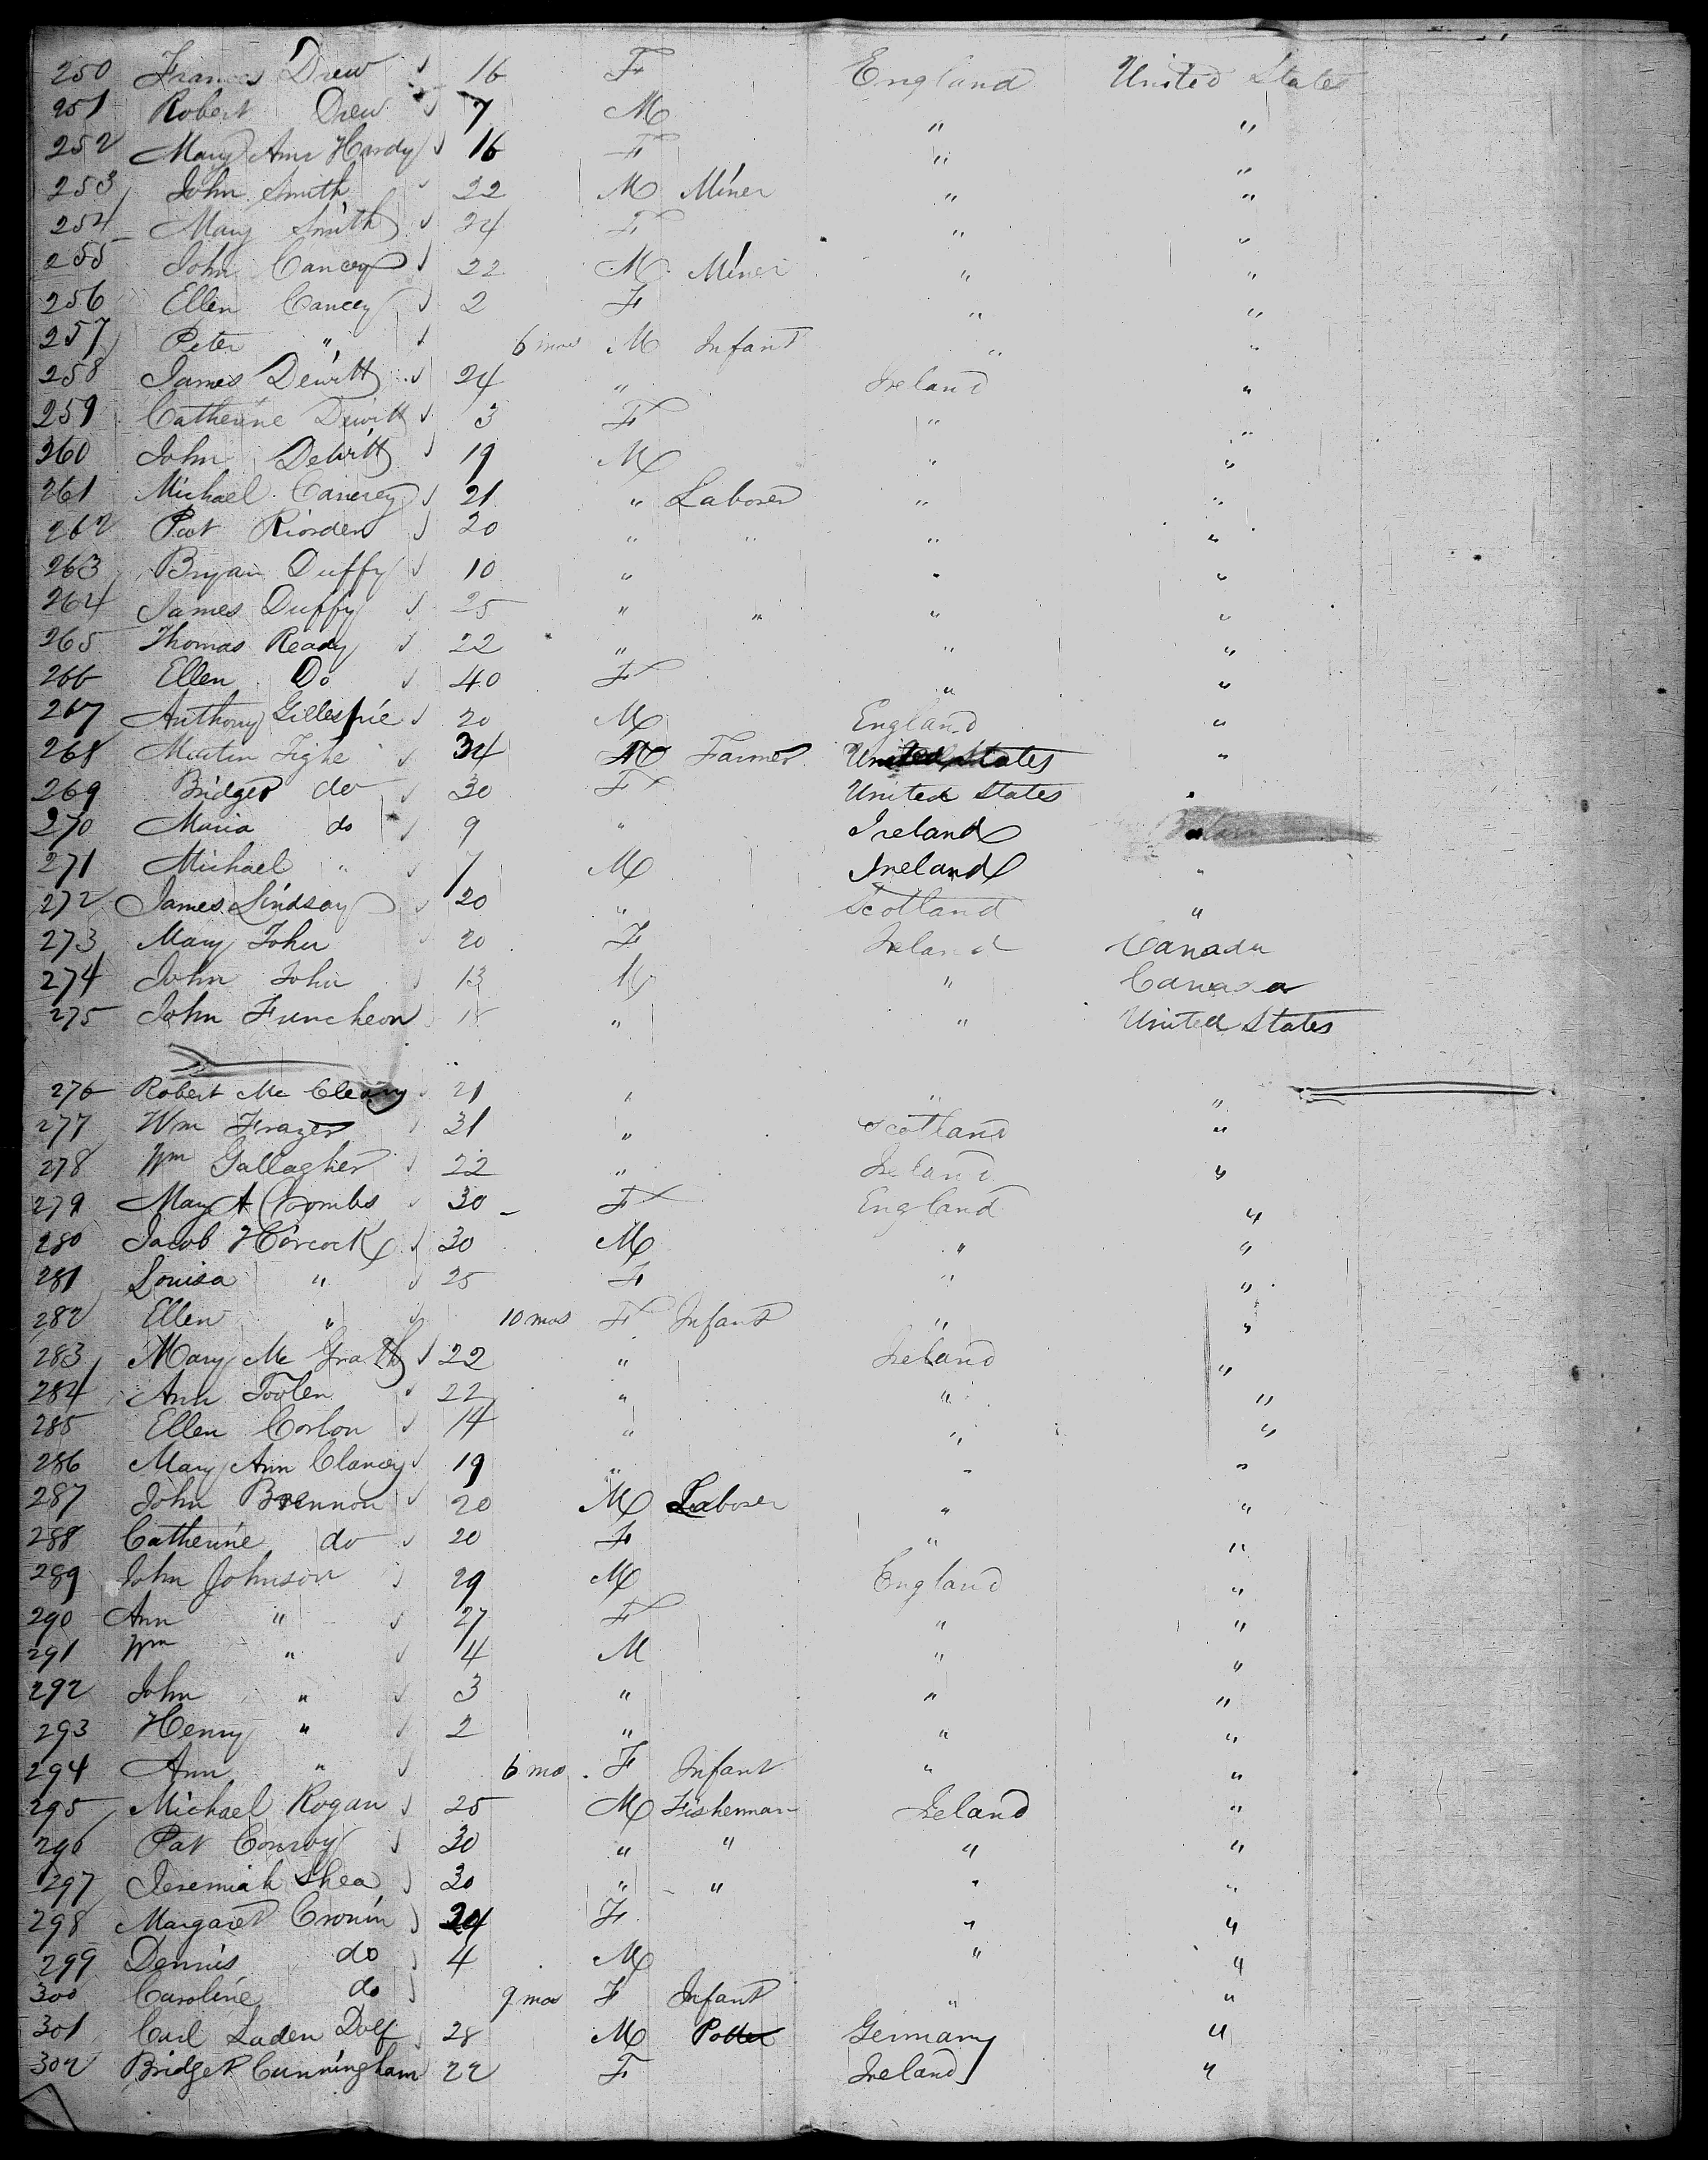 250 Frances Drew 16 F England United States
251 Robert Drew 7 M " "
252 Mary Ann Hardy 16 F " "
253 John Smith 22 M Miner " "
254 Mary Smith 24 F " "
255 John Cancey 22 M Miner " "
256 Ellen Cancey 2 F " "
257 Peter " 6 mos M Infant " "
258 James Dewitt 24 " Ireland "
259 Catherine Dewitt 3 F " "
360 John Dewitt 19 M " "
261 Michael 21 " Laborer " "
262 Pat Riorden 20 " " " "
263 Bryan Duffy 10 " " "
264 James Duffy 25 " " " "
265 Thomas Ready 22 " " "
266 Ellen Do 40 F " "
267 Anthony Gillespie 20 M England "
268 Martin Tighe 34 M Farmer United States "
269 Bridget do 30 F United States "
270 Maria do 9 " Ireland "
271 Michael " 7 M Ireland "
272 James Lindsay 20 " Scotland "
273 Mary John 20 F Ireland Canada
274 John John 13 M " Canada
275 John Funcheon 18 " " United States
276 Robert Mc Cleary 21 " " "
277 Wm Frazer 31 " Scotland "
278 Wm Gallagher 22 " Ireland "
279 Mary A Coombs 30 F England "
280 Jacob Horcock 30 M " "
281 Louisa " 25 F " "
282 Ellen " 10 mos F Infant " "
283 Mary Mc Grath 22 " Ireland "
284 Ann Toolen 22 " " "
285 Ellen Corbon 14 " " "
286 Mary Ann Clancey 19 " " "
287 John Brennon 20 M Laborer " "
288 Catherine do 20 F " "
289 John Johnson 29 M England "
290 Ann " 27 F " "
291 Wm " 4 M " "
292 John " 3 " " "
293 Henry " 2 " " "
294 Ann " 6 mo F Infant " "
295 Michael Rogan 25 M Fisherman Ireland "
296 Pat Conroy 30 " " " "
297 Jeremiah Shea 30 " " " "
298 Margaret Cronin 24 F " "
299 Dennis do 4 M " "
300 Caroline do 9 mos F Infant " "
301 Carl Laden Dolf 28 M Potter Germany "
302 Bridget Cunningham 22 F Ireland "